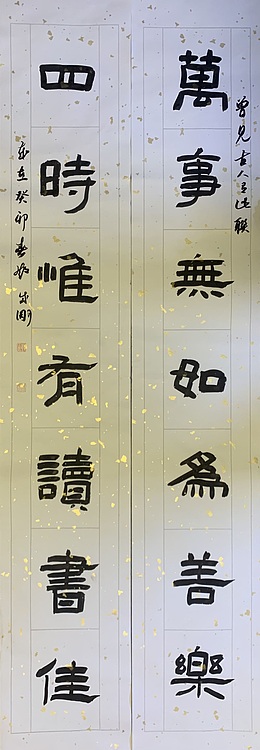 曾見古人有此聯
萬事無如為善樂
四時惟有讀書佳
歲在癸卯春如